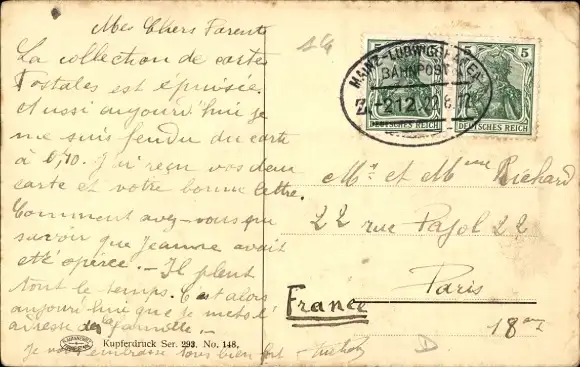 Mes Chers Parents
La collection de cartes
Postales est épuisée.
Aussi aujourd'hui je
me suis fendu du carte
à 0,10. J'ai reçu vos deux
carte et votre bonne lettre.
Comment avez-vous pu
savoir que Jeanne avait
été opérée. - Il pleut
tout le temps. C'est alors
aujourd'hui que je mets l'
adresse de
Je vous embrasse tous bien fort -
Kupferdruck Ser. 293. No. 148.
5
5
DEUTSCHES REICH
DEUTSCHES REICH
MAINZ-LUDWIGSHAFEN
BAHNPOST
Z. 212 22.8.12
Mr et Mme Richard
22 rue Pajol 22
Paris
France
18me